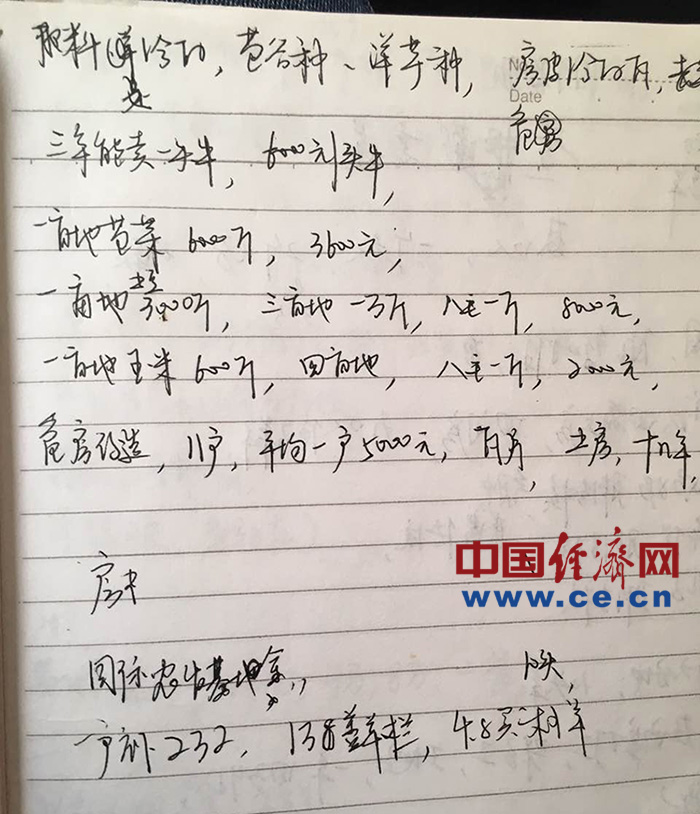 肥料,苞谷种、洋芋种,
No
Date
三年能卖一头牛,6000元一头牛,
一亩地芸菜 6000斤,3600元,
土豆
一亩地3000斤,三亩地一万斤,八毛一斤,8000元,
一亩地玉米600斤,四亩地,八毛一斤,2000元,
危房改造,11户,平均一户5000元,土房,十几年,
中国经济网
www.ce.cn
国际农发基金,
10头,
一户补232,138盖羊栏,4.8买种羊